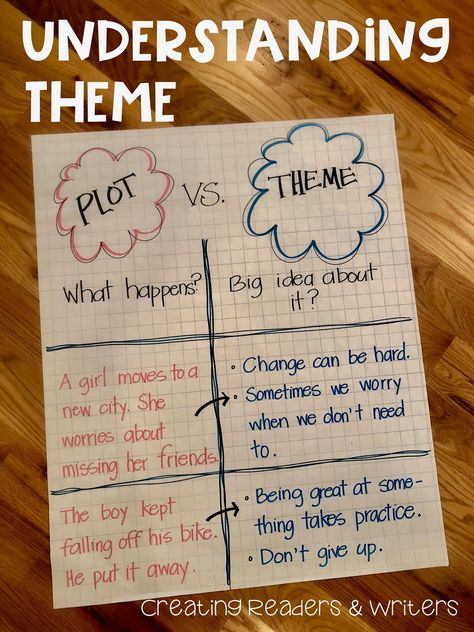 UNDERSTANDING
THEME
PLOT
VS.
THEME
What happens?
Big idea about
it?
A girl moves to a
new city. She
worries about
missing her friends.
• Change can be hard.
• Sometimes we worry
when we don't need
to.
The boy kept
falling off his bike.
He put it away.
• Being great at some-
thing takes practice.
• Don't give up.
Creating Readers & Writers